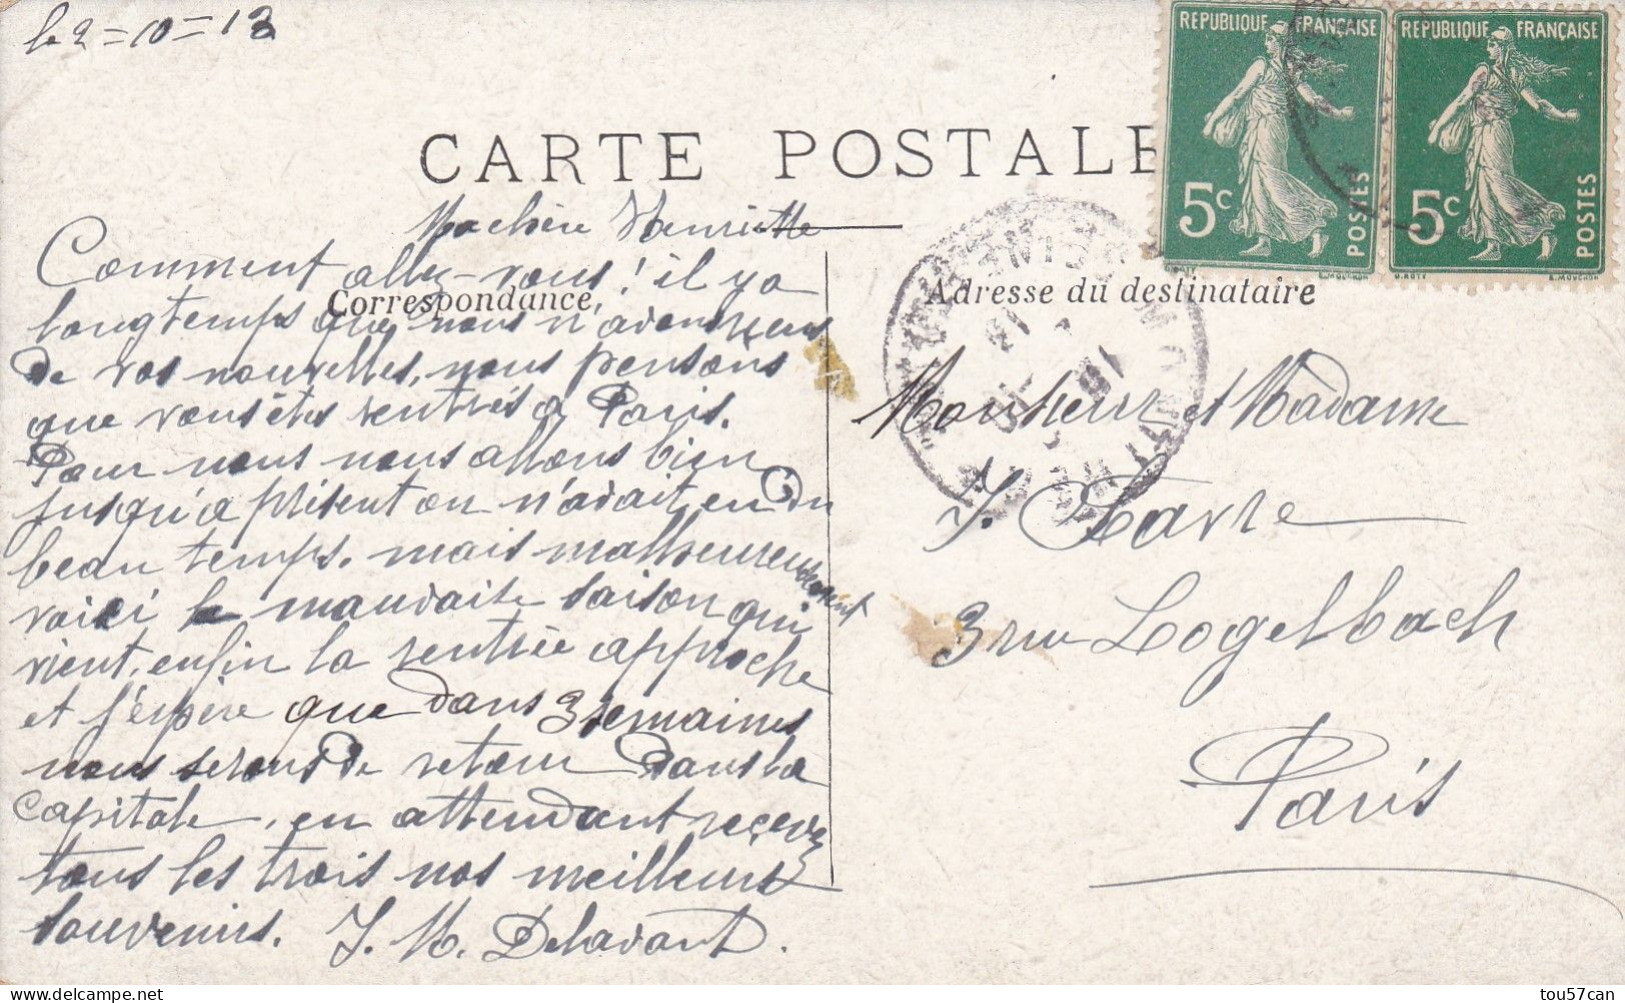 le 2=10=13
REPUBLIQUE FRANÇAISE
5c
POSTES
REPUBLIQUE FRANÇAISE
5c
POSTES
O. ROTY
E. MOUCHON
CARTE POSTALE
Ma chère Henriette
Correspondance
Adresse du destinataire
Comment allez-vous! il y a
longtemps que nous n'avons reçus
de vos nouvelles, nous pensons
que vous êtes rentrés à Paris.
Pour nous nous allons bien
jusqu'à présent on n'avait eu du
beau temps. mais malheureusement
voici la mauvaise saison qui
vient, enfin la rentrée approche
et j'espère que dans 3 semaines
nous serons de retour dans la
capitale, en attendant recevez
tous les trois nos meilleurs
souvenirs. J. M. Delavant.
Monsieur et Madame
J. Favre
3 rue Logelbach
Paris
tou57can